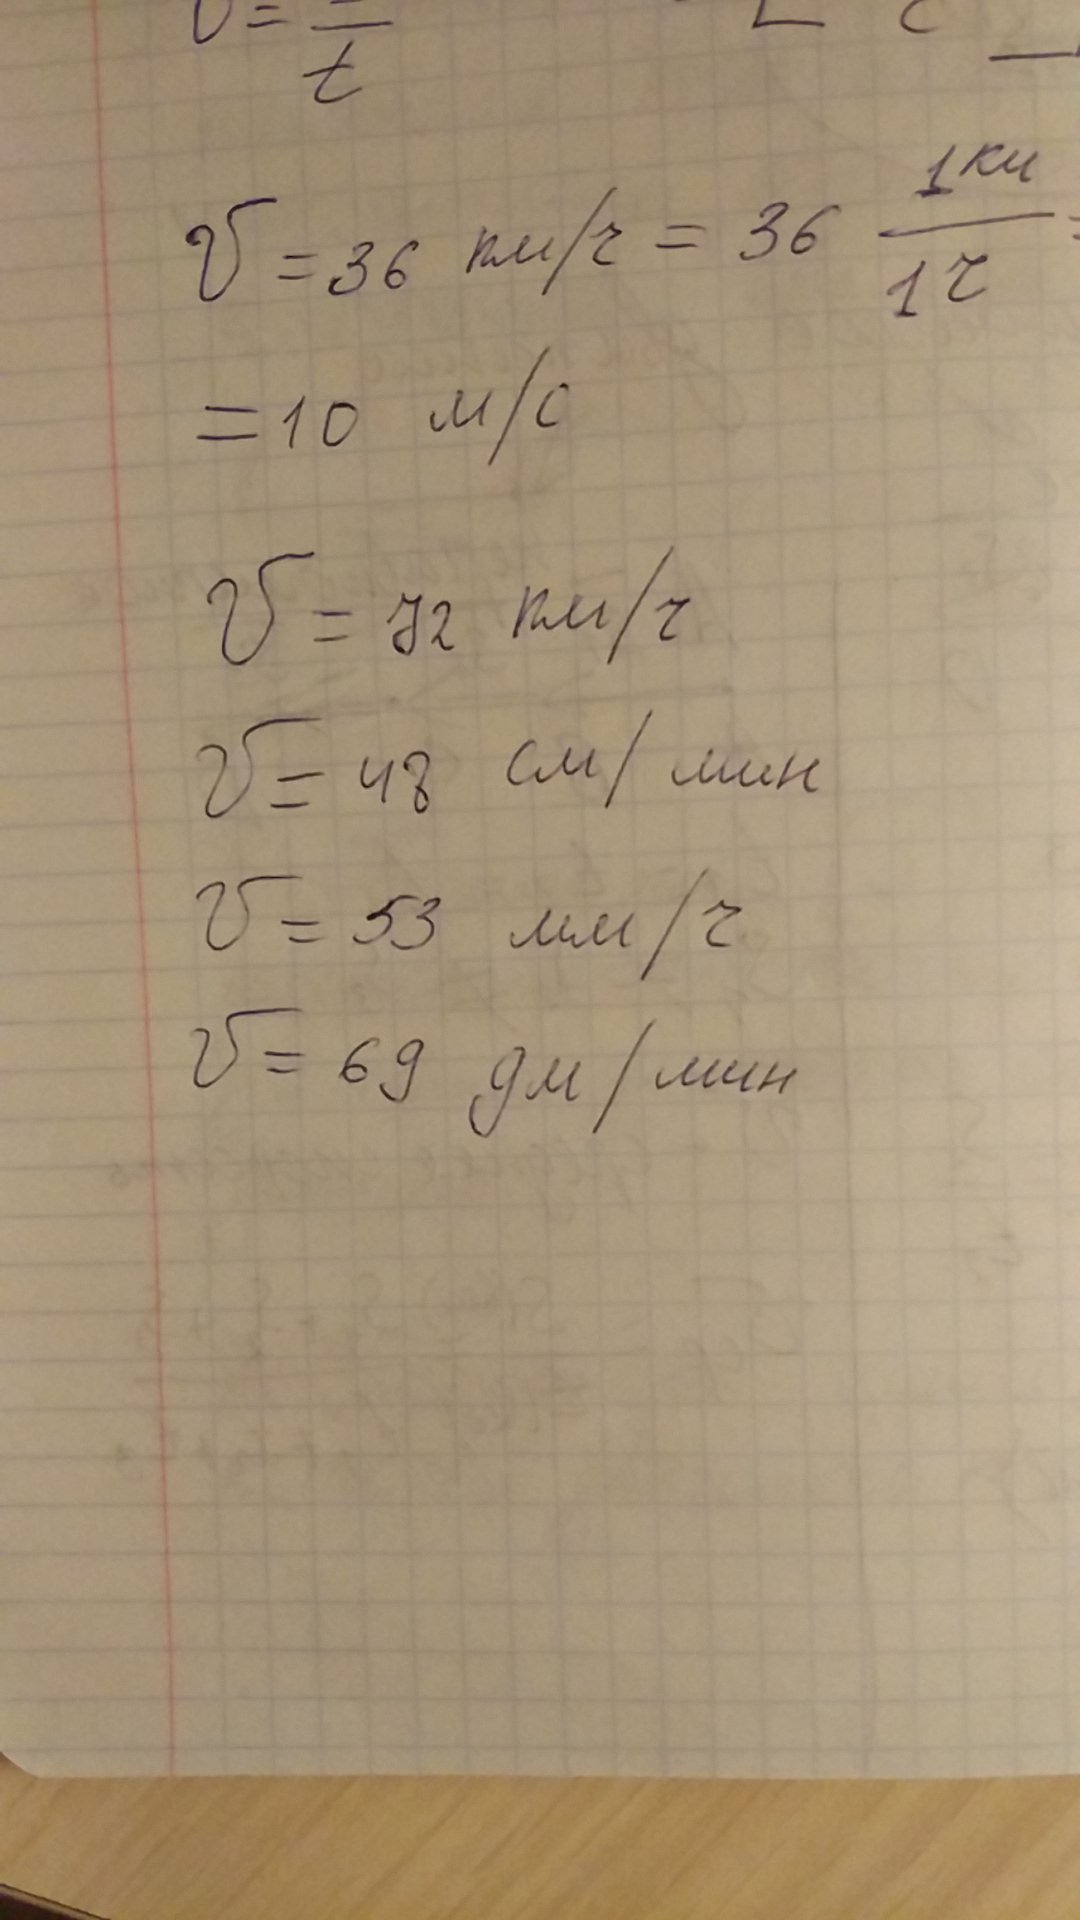 v = /t
v = 36 км/ч = 36 1км/1ч =
= 10 м/с
v = 72 км/ч
v = 48 см/мин
v = 53 мм/ч
v = 69 дм/мин